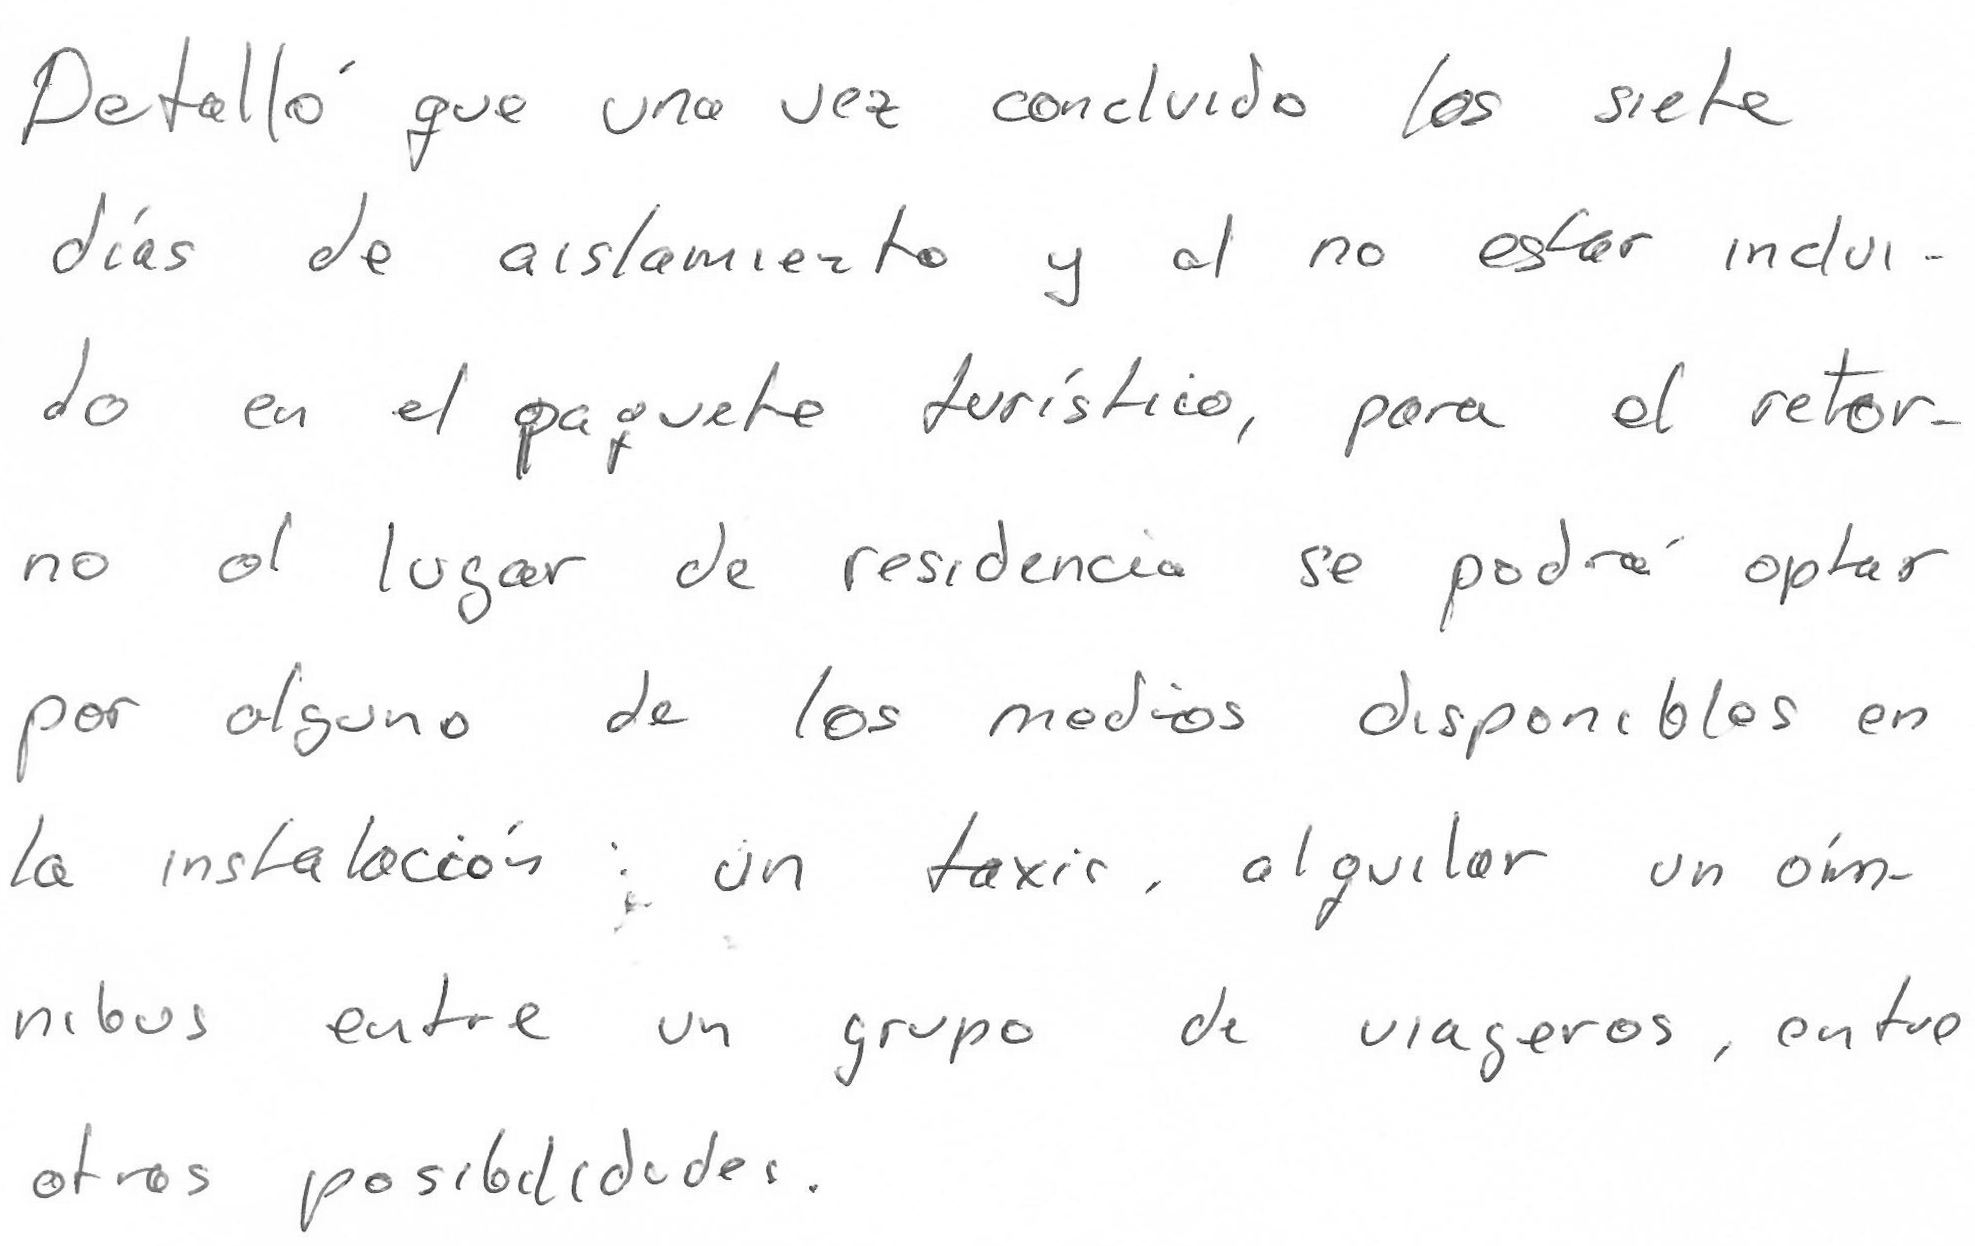 Detalló que una vez concluido los siete
días de aislamiento y al no estar inclui-
do en el paquete turístico, para el retor-
no al lugar de residencia se podrá optar
por alguno de los medios disponibles en
la instalación: un taxis, alquilar un óm-
nibus entre un grupo de viageros, entre
otras posibilidades.